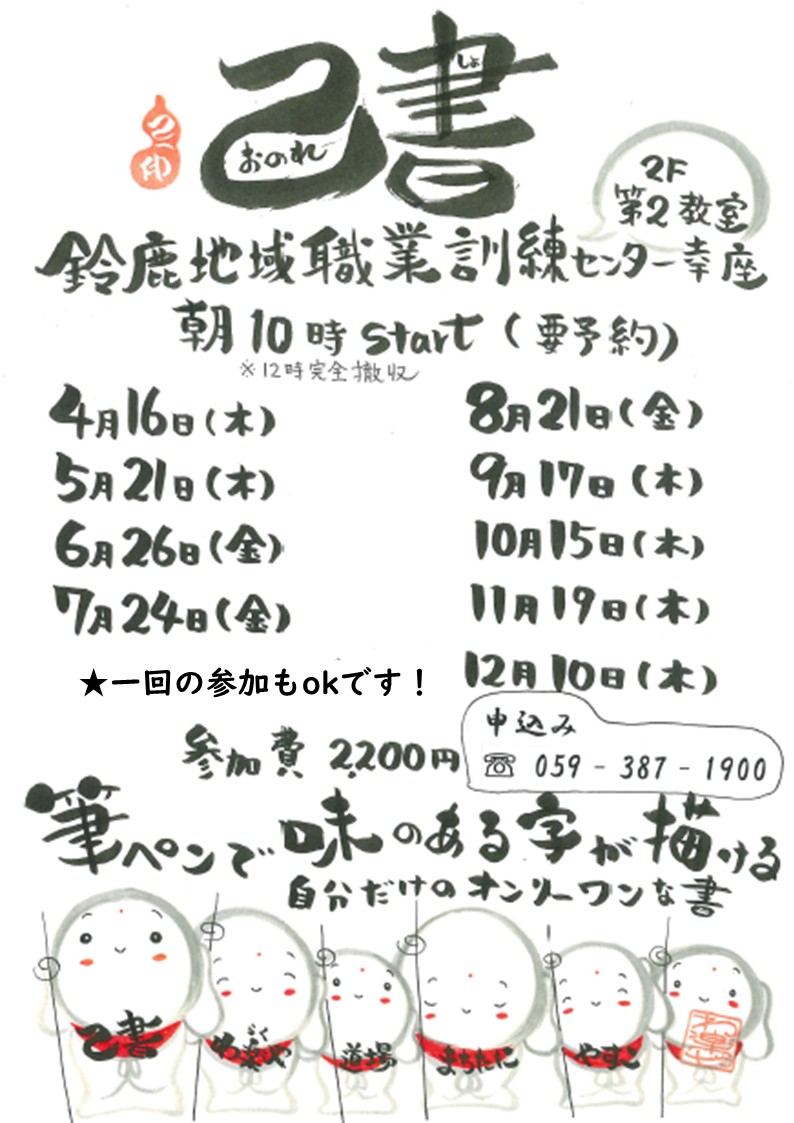 己書
おのれ
しょ
己印
2F
第2教室
鈴鹿地域職業訓練センター幸座
朝10時start(要予約)
※12時完全撤収
4月16日(木)
5月21日(木)
6月26日(金)
7月24日(金)
8月21日(金)
9月17日(木)
10月15日(木)
11月19日(木)
12月10日(木)
★一回の参加もokです!
申込み
☏ 059-387-1900
参加費 2,200円
筆ペンで味のある字が描ける
自分だけのオンリーワンな書
己書
わ楽や
らく
道場
まちたに
やすこ